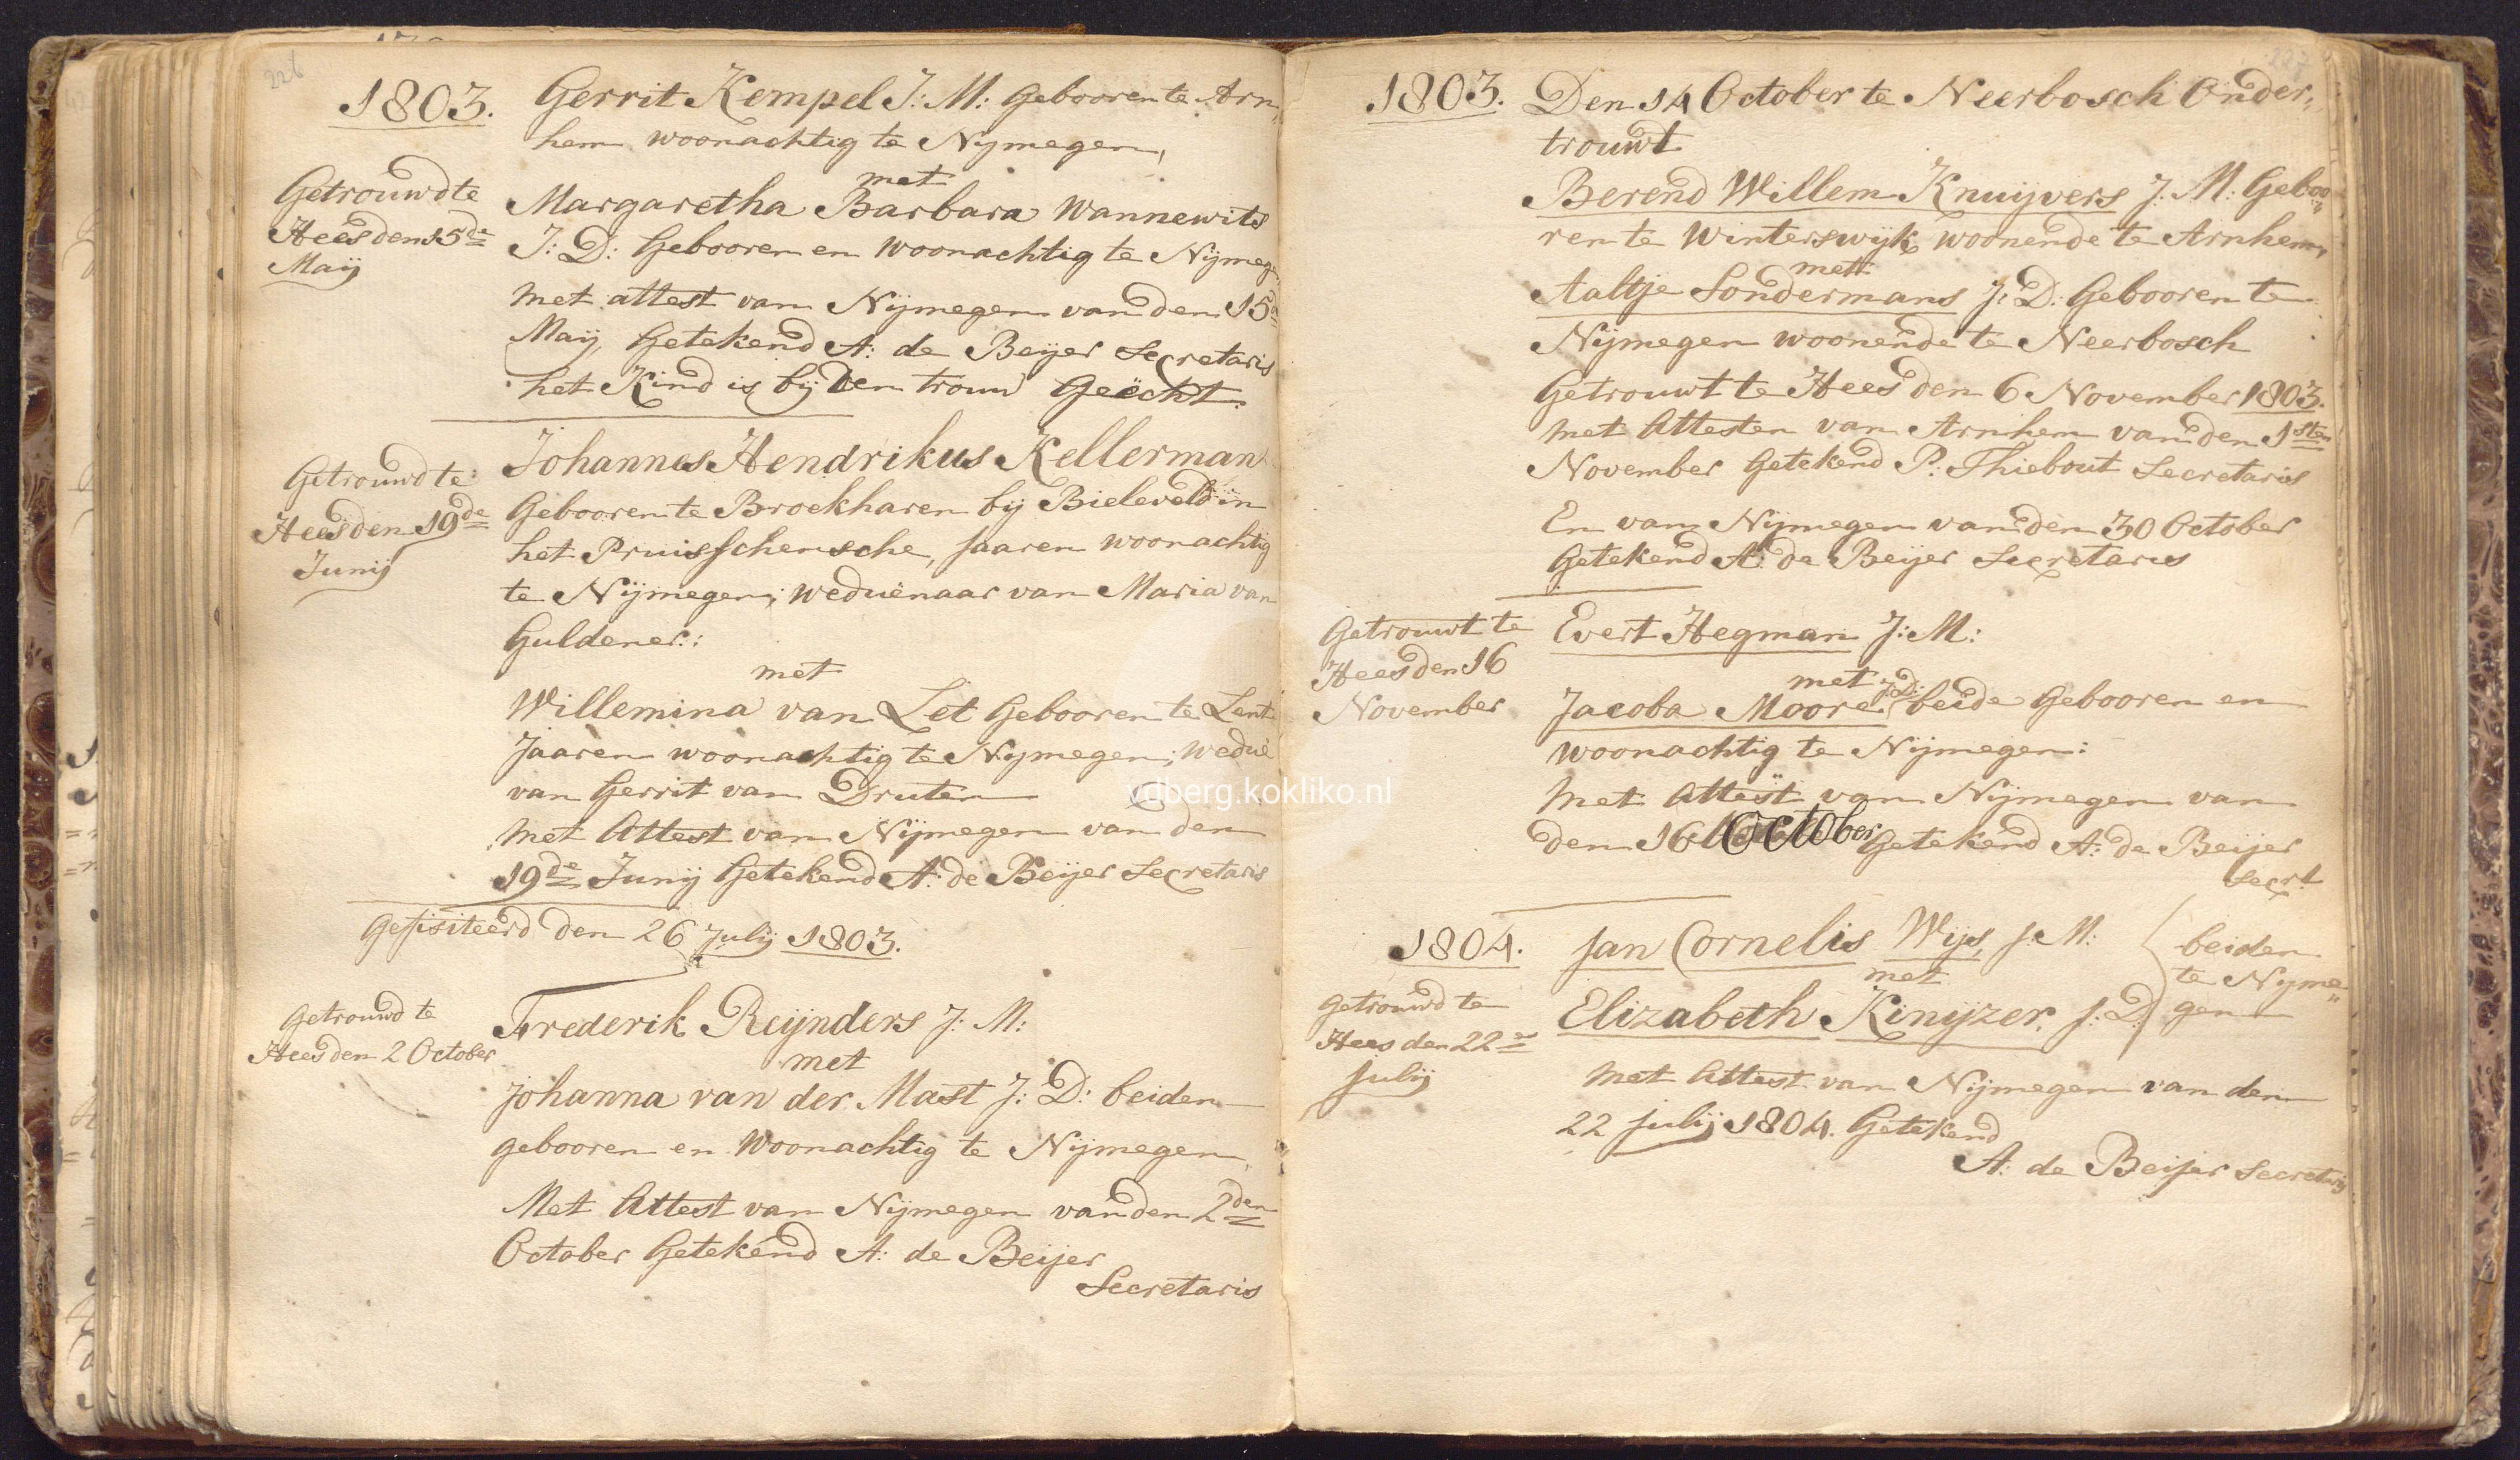 226
1803.
Gerrit Kempel J: M: Gebooren te Arn„
hem woonachtig te Nymegen,
met
Getrouwd te
Hees den 15de
Maij
Margaretha Barbara Wannewits
J: D: Gebooren en Woonachtig te Nijmegen
Met attest van Nijmegen van den 15de
Maij, Getekend A: de Beijer Secretaris
het Kind is bij den trouw Geëcht.
Getrouwd te
Hees den 19de
Junij
Johannes Hendrikus Kellerman
Gebooren te Brockharen bij Bieleveld in
het Pruisschensche, Jaaren woonachtig
te Nijmegen; Weduënaar van Maria van
Guldener:
met
Willemina van Let Gebooren te Lent
Jaaren woonachtig te Nymegen; Weduë
van Gerrit van Druten
Met Attest van Nijmegen van den
19de Junij Getekend A: de Beijer Secretaris
Gefisiteerd den 26 Julij 1803.
Getrouwd te
Hees den 2 October
Frederik Reijnders J: M:
met
Johanna van der Mast J: D: beiden
gebooren en Woonachtig te Nijmegen,
Met Attest van Nijmegen van den 2den
October Getekend A: de Beijer
Secretaris
227
1803.
Den 14 October te Neerbosch Onder„
trouwt
Berend Willem Knuijvers J: M: Geboo„
ren te Winterswijk woonende te Arnhem,
mett
Aaltje Sondermans J: D: Gebooren te
Nijmegen woonende te Neerbosch
Getrouwt te Hees den 6 November 1803.
Met Attesten van Arnhem van den 1sten
November Getekend P: Thiebout Secretaris
En van Nijmegen van den 30 October
Getekend A: de Beijer Secretaris
Getrouwt te
Hees den 16
November
Evert Hegman J: M:
met
Jacoba Moore J:D: beide Gebooren en
woonachtig te Nijmegen:
Met Attest van Nijmegen van
den 16 October Getekend A: de Beijer
Secrt
1804.
Getrouwd te
Hees den 22e
Julij
Jan Cornelis Wijs, J: M:
met
Elizabeth Kinijzer, J: D:
beiden
te Nyme„
gen
Met Attest van Nijmegen van den
22 Julij 1804. Getekend
A: de Beijer Secretaris
vdberg.kokliko.nl